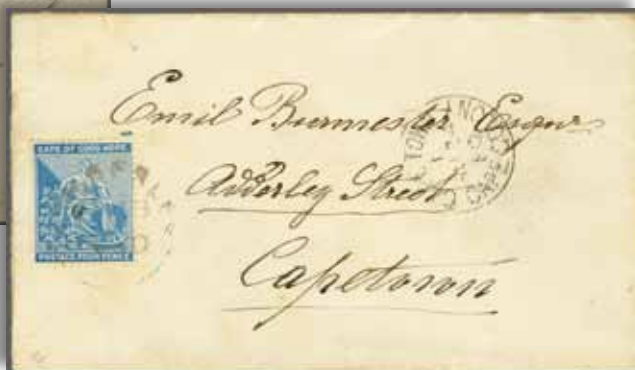 Emil Burmester Esqre
Adderley Street
Capetown
CAPE OF GOOD HOPE
POSTAGE FOUR PENCE